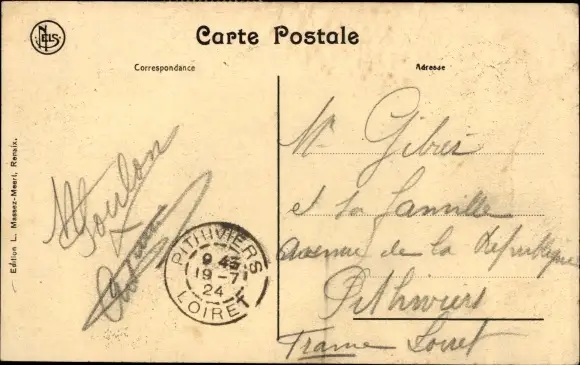 NELS
Carte Postale
Correspondance
Adresse
Edition L. Massez-Meert, Renaix.
Toulon
PITHIVIERS
9 45
19-7
24
LOIRET
Mr Gibier
et la famille
Avenue de la République
Pithiviers
France Loiret